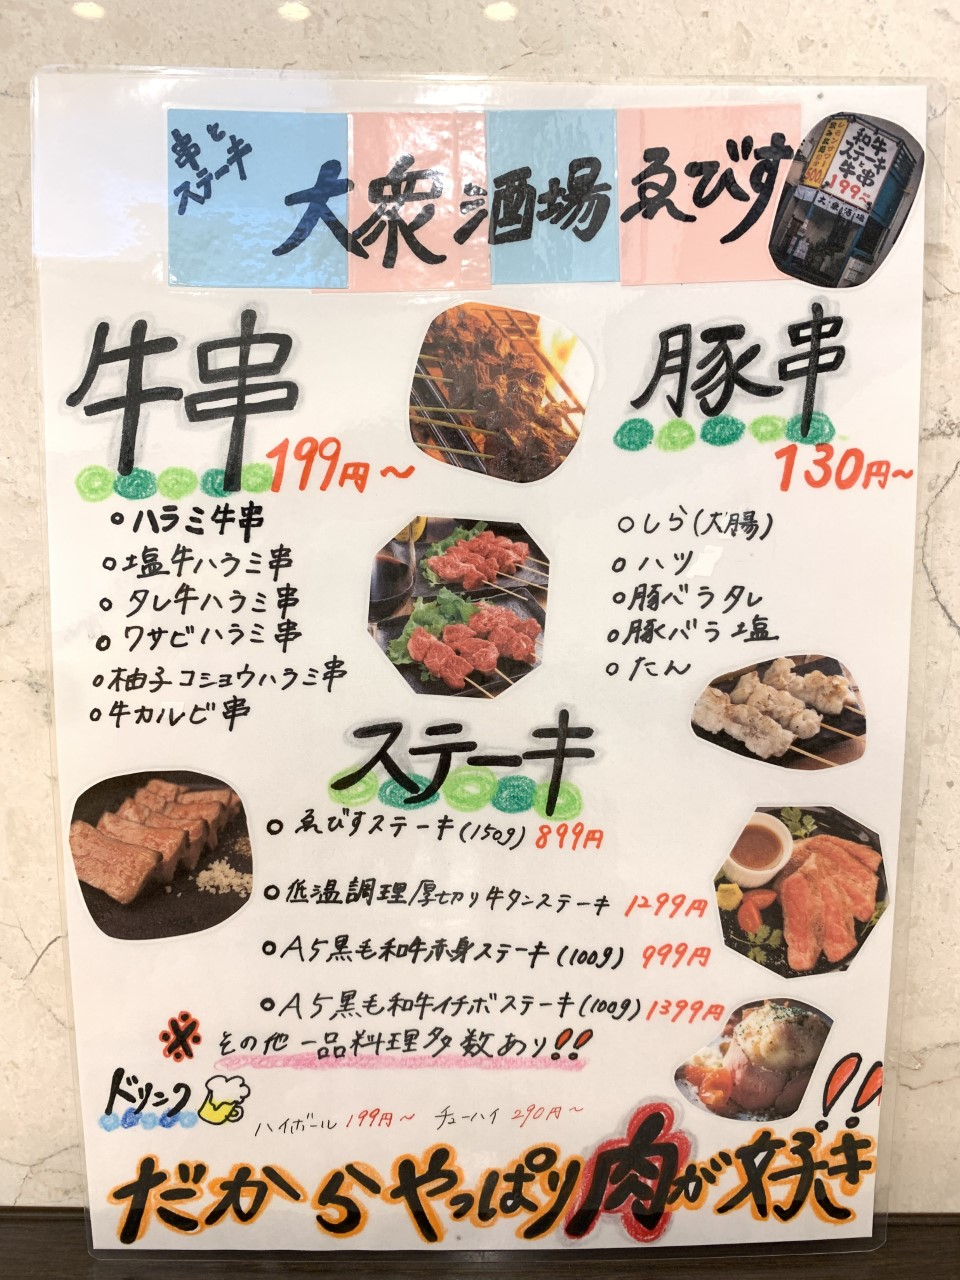 串とステーキ
大衆酒場 ゑびす
和牛
ステーキと
牛串
199〜
大衆酒場
牛串
199円〜
ハラミ牛串
塩牛ハラミ串
タレ牛ハラミ串
ワサビハラミ串
柚子コショウハラミ串
牛カルビ串
豚串
130円〜
しろ(大腸)
ハツ
豚バラタレ
豚バラ塩
たん
ステーキ
ゑびすステーキ(150g) 899円
低温調理厚切り牛タンステーキ 1299円
A5黒毛和牛赤身ステーキ(100g) 999円
A5黒毛和牛イチボステーキ(100g) 1399円
※その他一品料理多数あり!!
ドリンク
ハイボール 199円〜 チューハイ 290円〜
だからやっぱり肉が好き!!